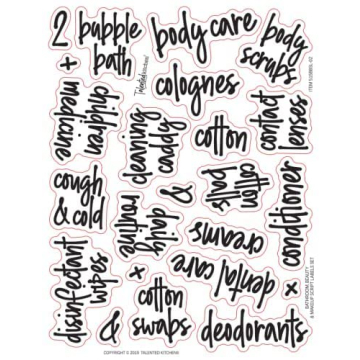 2
bubble
bath
+
Talented Kitchen
body care
body
scrubs
colognes
ITEM
children
medicine
cleaning
caddy
cotton
contact
lenses
cough
& cold
&
cotton
pads
daily
routine
conditioner
creams
disinfectant
wipes
x
dental care
x
cotton
& swabs
deodorants
BATHROOM, BEAUTY
& MAKEUP SCRIPT LABELS SET
COPYRIGHT © 2019 TALENTED KITCHEN®